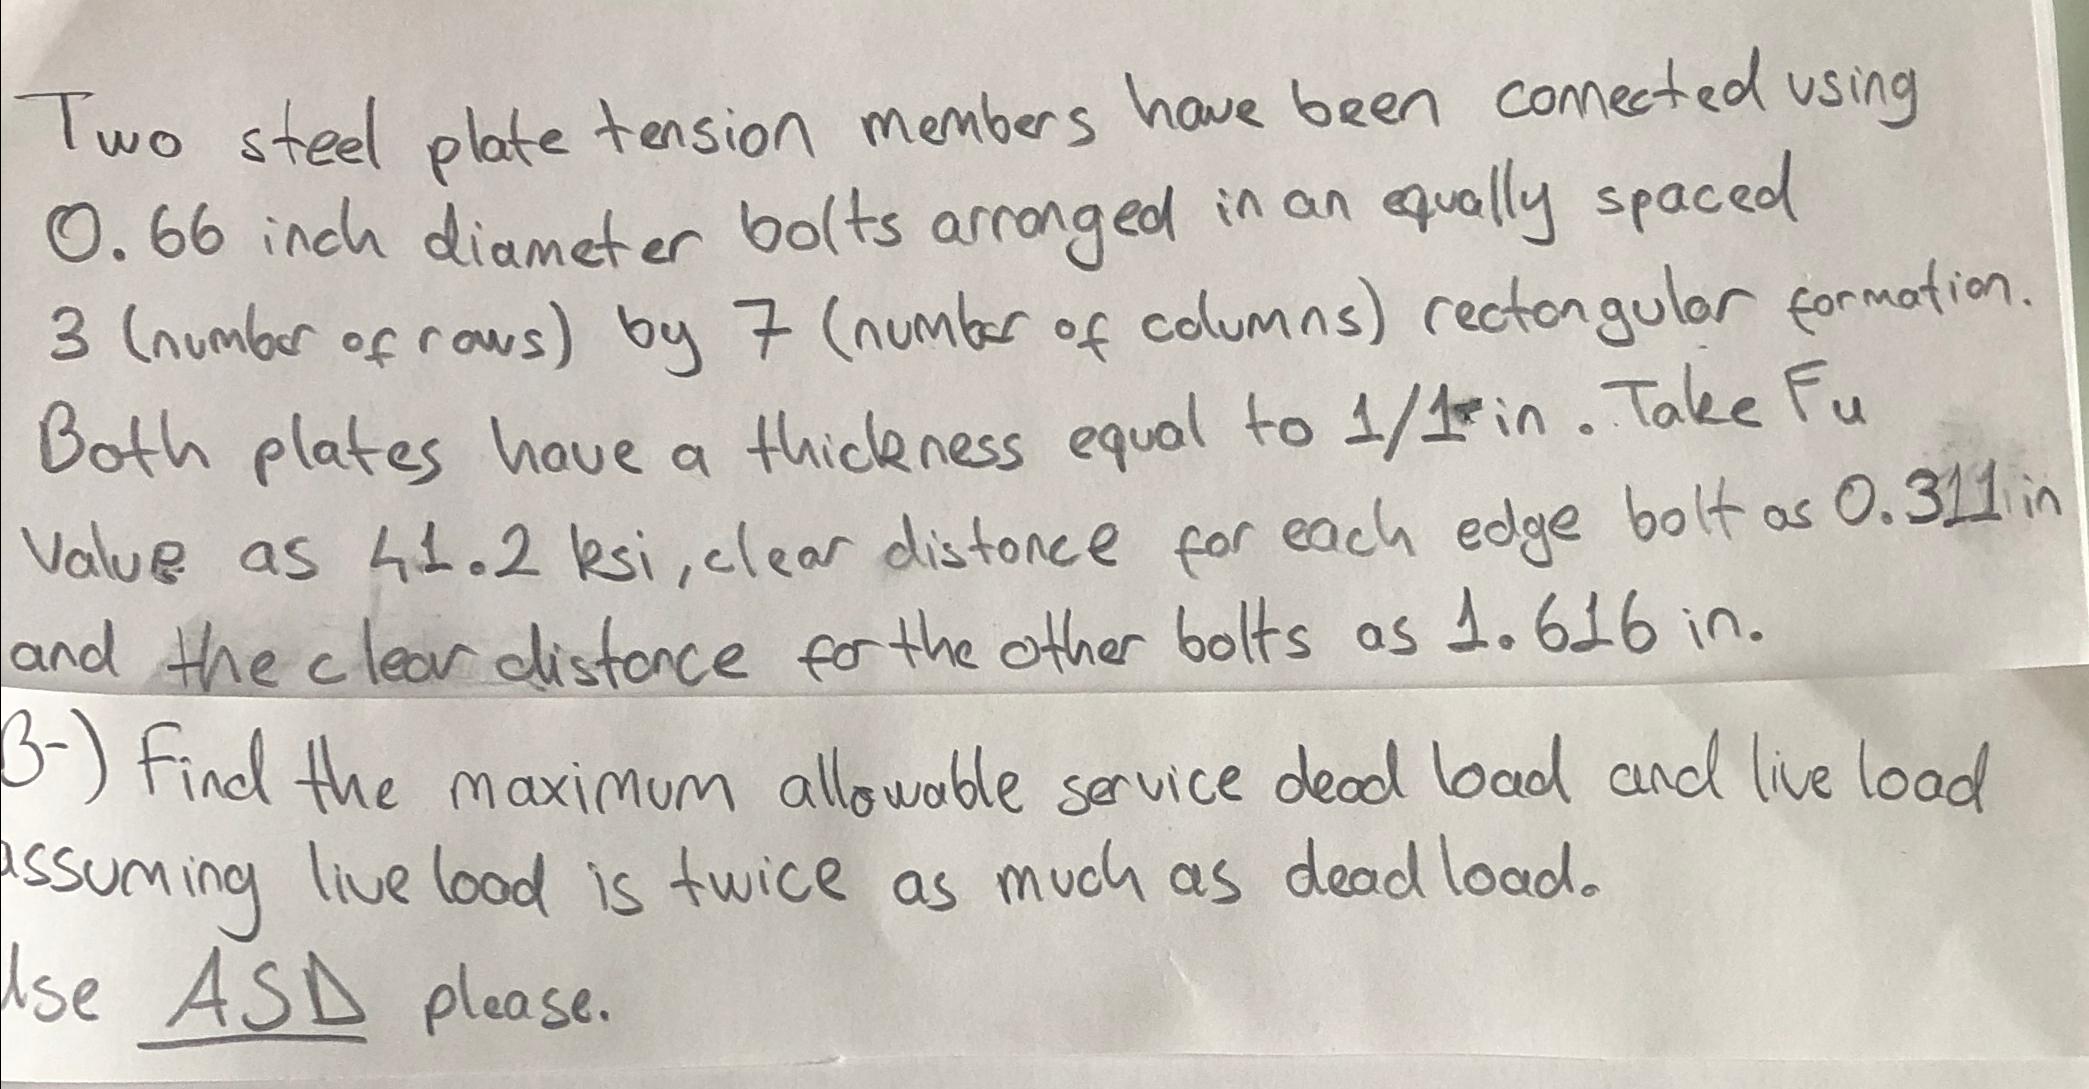 Two steel plate tension members have been connected using
0.66 inch diameter bolts arranged in an equally spaced
3 (number of rows) by 7 (number of columns) rectangular formation.
Both plates have a thickness equal to 1/1 in. Take Fu
Value as 41.2 ksi, clear distance for each edge bolt as 0.311 in
and the clear distance for the other bolts as 1.616 in.
B-) Find the maximum allowable service dead load and live load
assuming live load is twice as much as dead load.
Use ASD please.